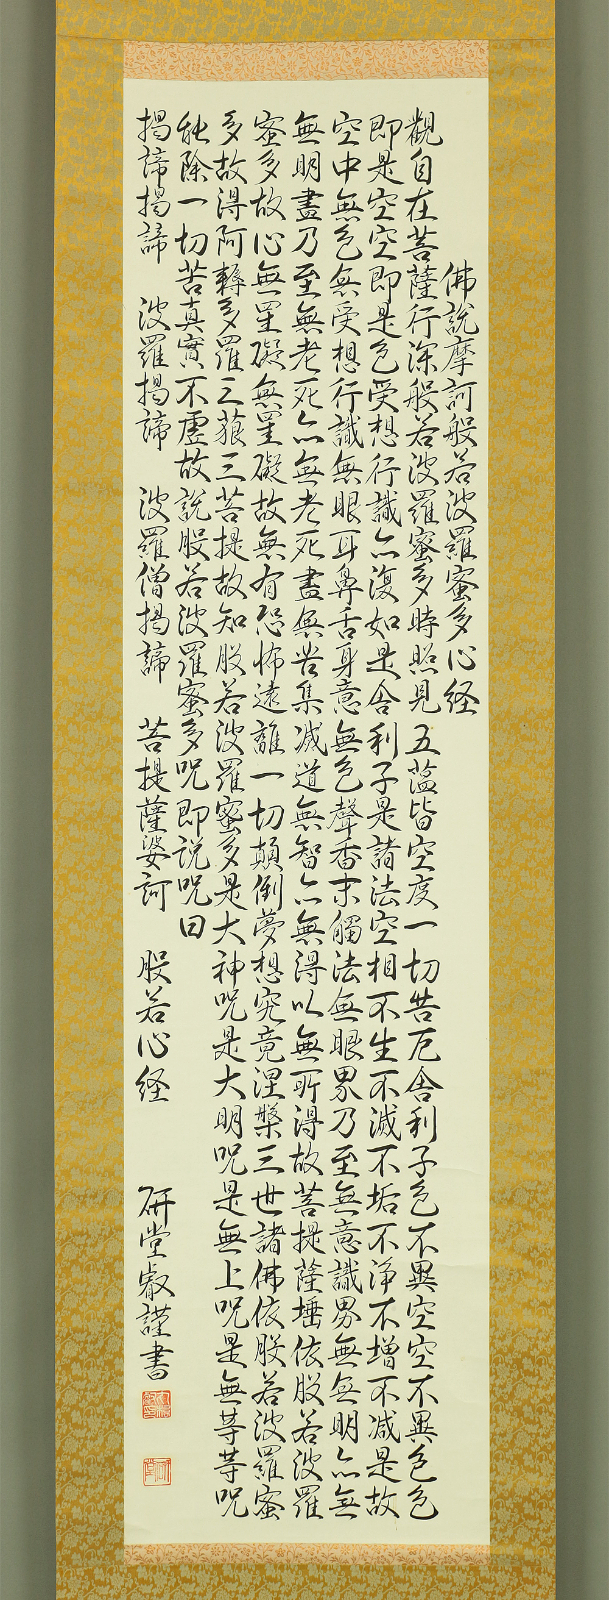 佛說摩訶般若波羅蜜多心経
觀自在菩薩行深般若波羅蜜多時照見五蘊皆空度一切苦厄舍利子色不異空空不異色色
即是空空即是色受想行識亦復如是舍利子是諸法空相不生不滅不垢不浄不增不減是故
空中無色無受想行識無眼耳鼻舌身意無色聲香味觸法無眼界乃至無意識界無無明亦無
無明盡乃至無老死亦無老死盡無苦集滅道無智亦無得以無所得故菩提薩埵依般若波羅
蜜多故心無罣礙無罣礙故無有恐怖遠離一切顛倒夢想究竟涅槃三世諸佛依般若波羅蜜
多故得阿耨多羅三藐三菩提故知般若波羅蜜多是大神呪是大明呪是無上呪是無等等呪
能除一切苦真實不虛故說般若波羅蜜多呪即説呪曰
揭諦揭諦 波羅揭諦 波羅僧揭諦 菩提薩婆訶 般若心経 研堂叡謹書